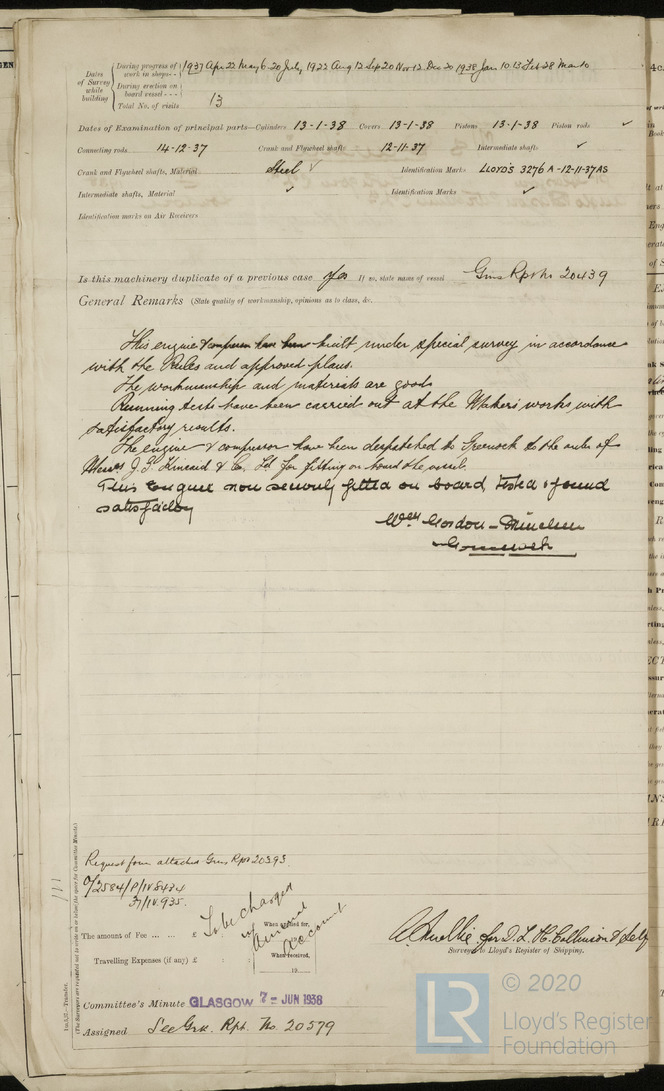 Dates of Survey while building
During progress of work in shops - - 1937 Apr 22 May 6. 20 July, 1922 Aug 12 Sep 20 Nov 12. Dec 20 1938 Jan 10. 13 Feb 28 Mar 10
During erection on board vessel - - -
Total No. of visits 13
Dates of Examination of principal parts—Cylinders 13-1-38 Covers 13-1-38 Pistons 13-1-38 Piston rods ✓
Connecting rods 14-12-37 Crank and Flywheel shafts 12-11-37 Intermediate shafts ✓
Crank and Flywheel shafts, Material Steel ✓ Identification Marks LLOYD'S 3276 A-12-11-37 AS
Intermediate shafts, Material ✓ Identification Marks ✓
Identification marks on Air Receivers
Is this machinery duplicate of a previous case Yes If so, state name of vessel Gms Rpt No 20439
General Remarks (State quality of workmanship, opinions as to class, &c.
This engine & compressor have been built under special survey in accordance
with the Rules and approved plans.
The workmanship and materials are good
Running tests have been carried out at the Makers works with
satisfactory results.
The engine & compressor have been despatched to Greenock to the order of
Messrs J. G. Kincaid & Co. Ltd for fitting on board the vessel.
This engine now securely fitted on board, tested & found
satisfactory
Wm Gordon-
Greenock
Request form attached Gms Rpt 20393.
(The Surveyors are requested not to write on or below the space for Committee Minute.)
The amount of Fee ... ... £ : :
To be charged
in Annual
Account
When applied for,
Travelling Expenses (if any) £ : :
When received,
19
for D. L. H. Collinson & Self
Surveyor to Lloyd's Register of Shipping.
Committee's Minute GLASGOW 7 - JUN 1938
Assigned See Grk. Rpt. No. 20579
© 2020
LR
Lloyd's Register
Foundation